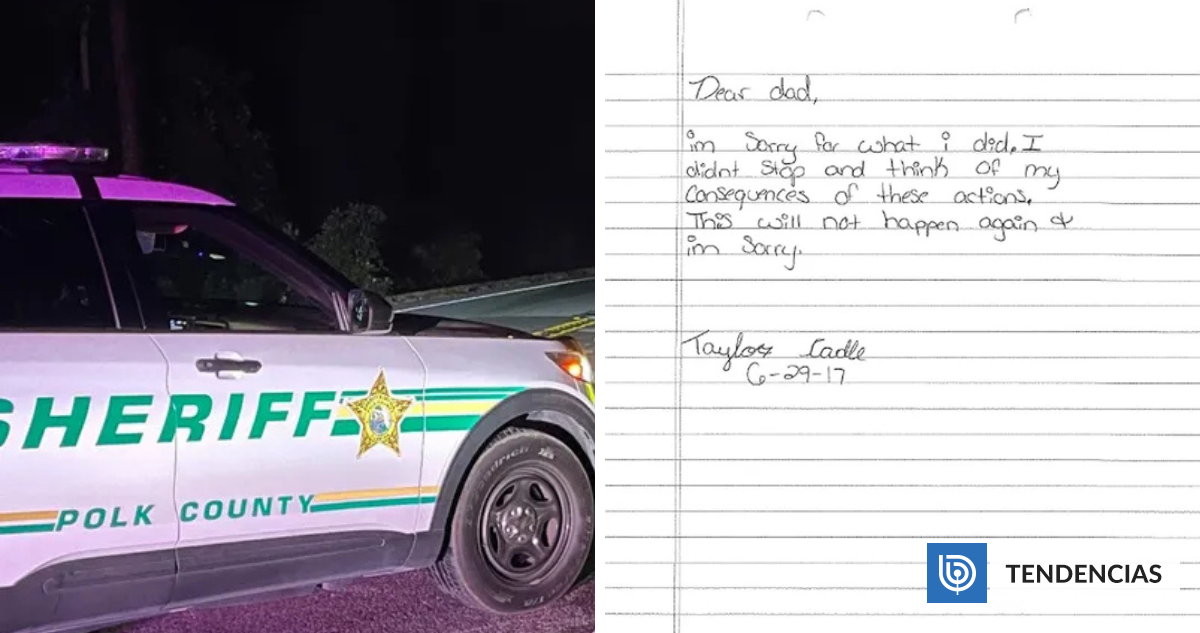 SHERIFF
POLK COUNTY
Dear dad,
im Sorry for what i did. I
didnt stop and think of my
consequences of these actions.
This will not happen again &
im Sorry.
Taylor Cadle
6-29-17
TENDENCIAS